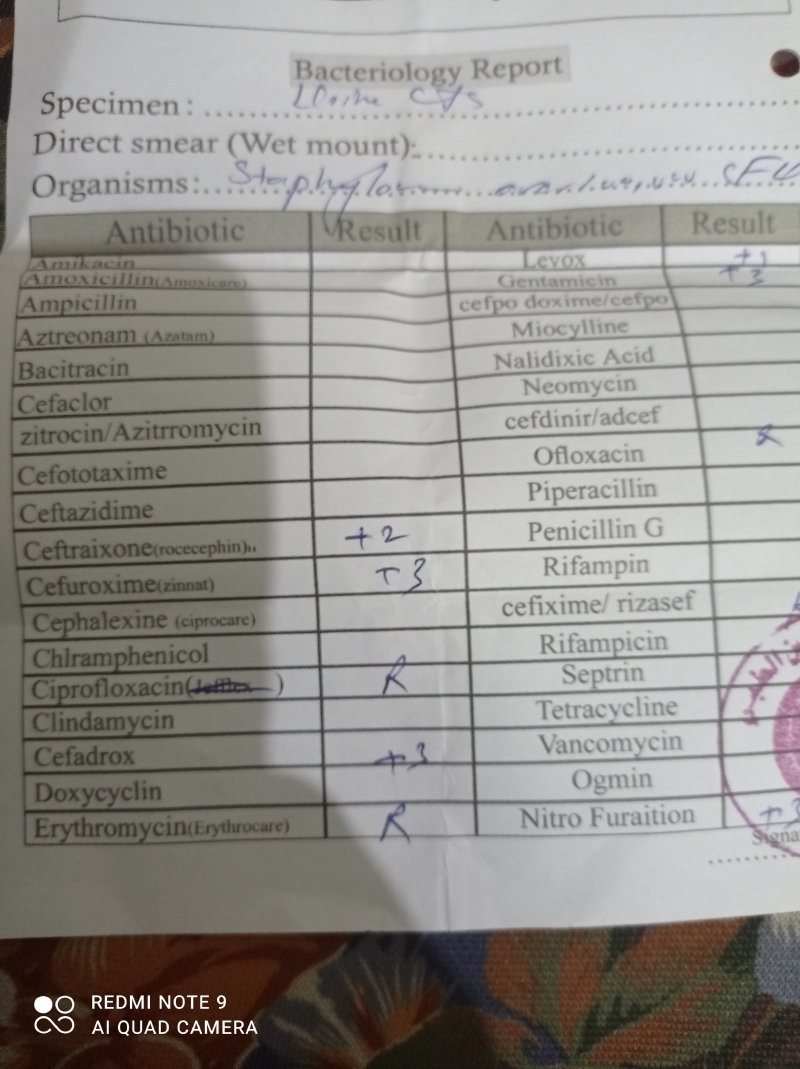 Bacteriology Report
Specimen : Urine C/S
Direct smear (Wet mount):
Organisms:
Antibiotic Result Antibiotic Result
Amikacin Levox +1
Amoxicillin(Amoxicare) Gentamicin +3
Ampicillin cefpo doxime/cefpo
Aztreonam (Azatam) Miocylline
Bacitracin Nalidixic Acid
Cefaclor Neomycin
zitrocin/Azitrromycin cefdinir/adcef
Cefototaxime Ofloxacin R
Ceftazidime Piperacillin
Ceftraixone(rocecephin)،، +2 Penicillin G
Cefuroxime(zinnat) +3 Rifampin
Cephalexine (ciprocare) cefixime/ rizasef
Chlramphenicol Rifampicin
Ciprofloxacin( ) R Septrin
Clindamycin Tetracycline
Cefadrox +3 Vancomycin
Doxycyclin Ogmin
Erythromycin(Erythrocare) R Nitro Furaition +3
Signa
REDMI NOTE 9
AI QUAD CAMERA